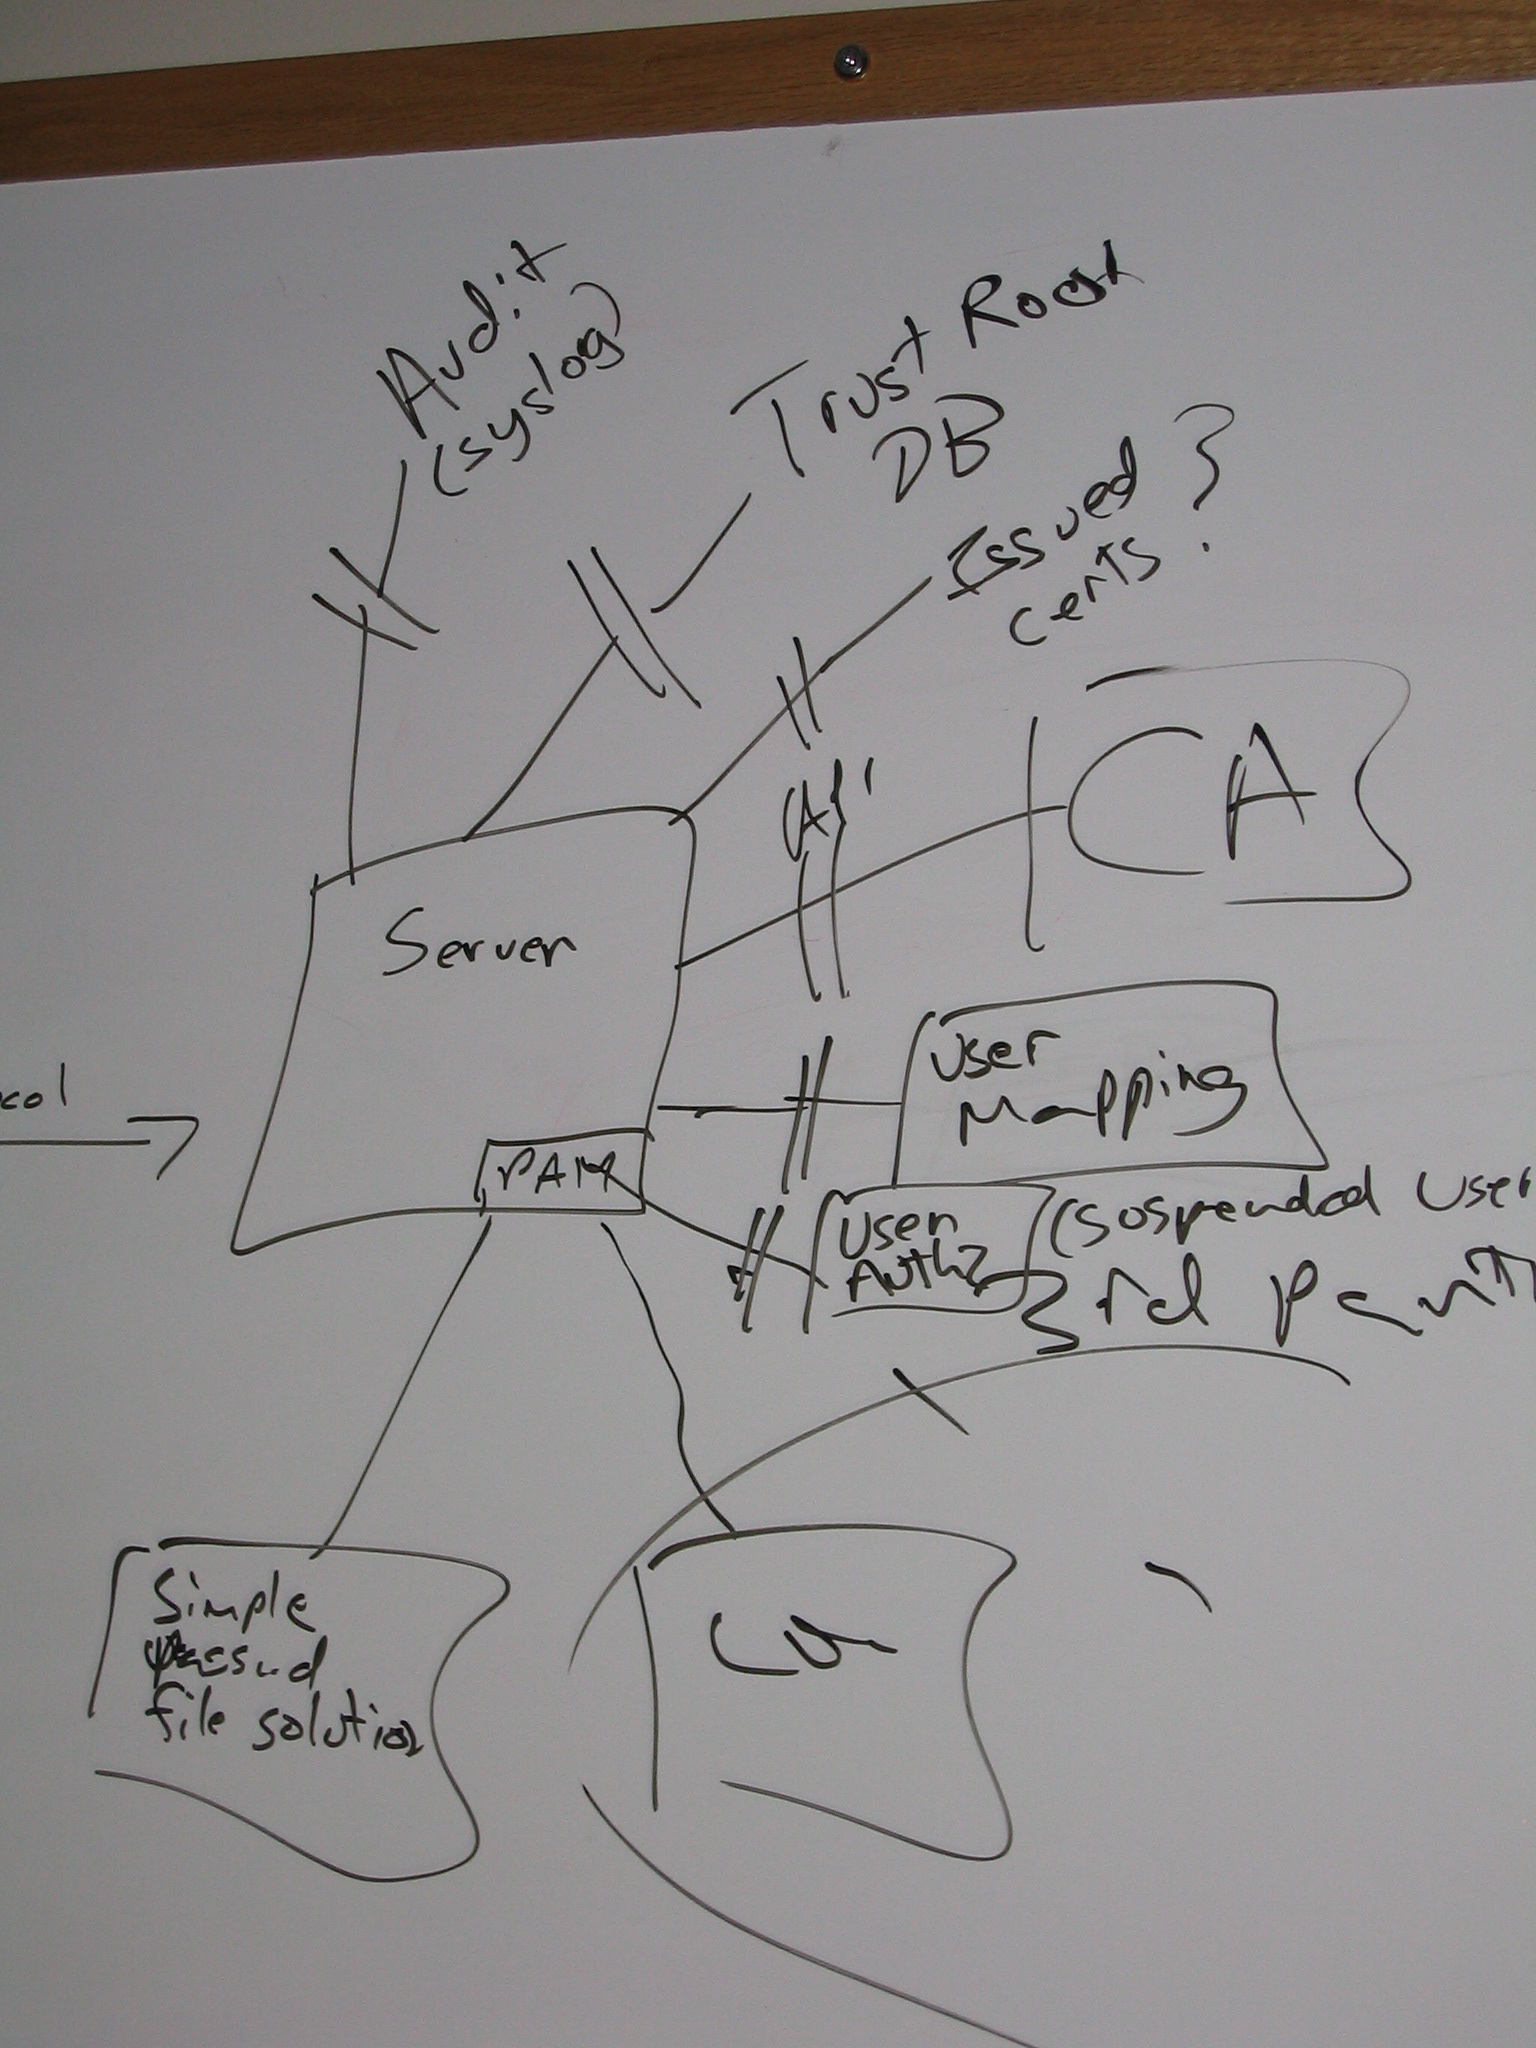 Audit
(syslog)
Trust Root
DB
Issued ?
certs
CA
Server
User
Mapping
PAM
User
AuthZ
(suspended user
3rd party
Simple
passwd
file solution